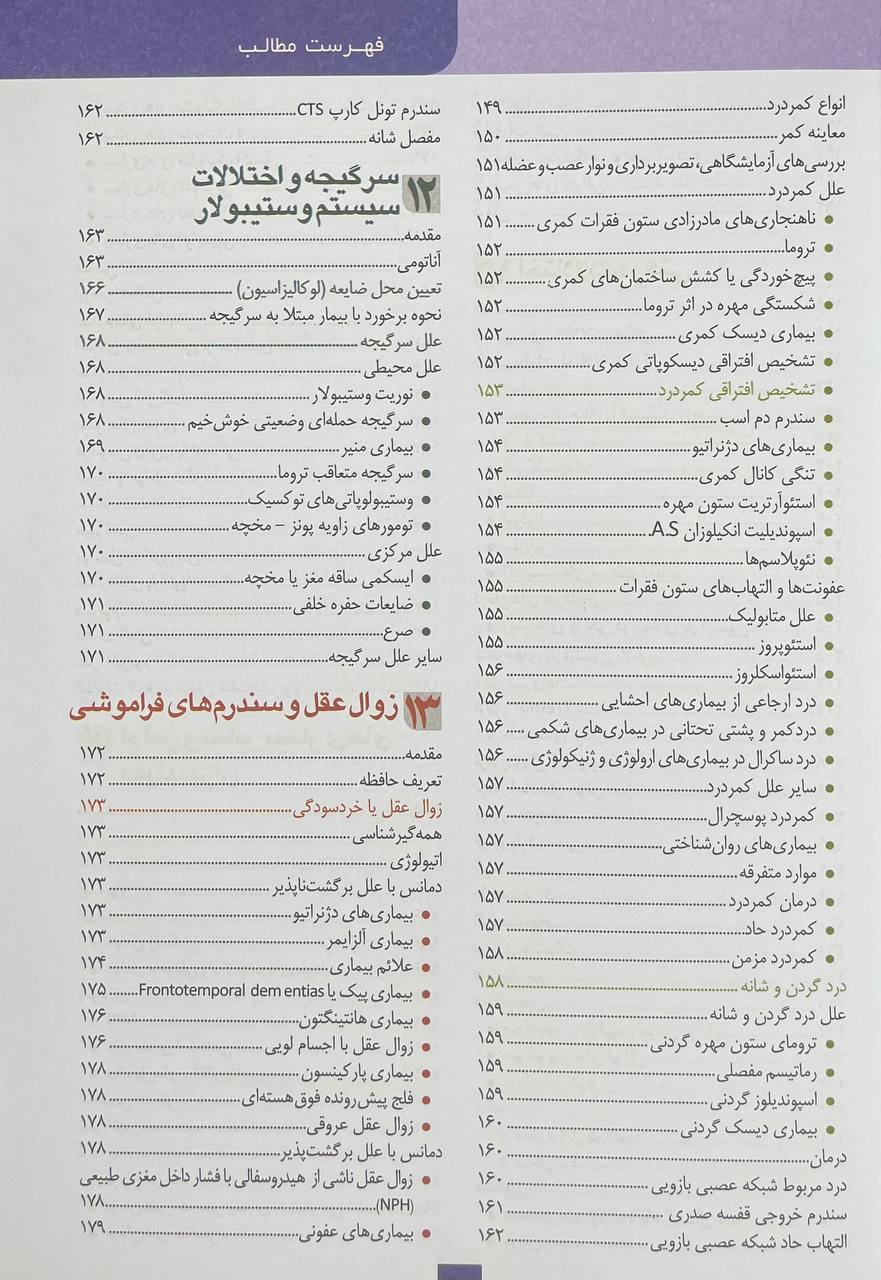 فهرست مطالب
انواع کمردرد ۱۴۹
معاینه کمر ۱۵۰
بررسی‌های آزمایشگاهی، تصویربرداری و نوار عصب و عضله ۱۵۱
علل کمردرد ۱۵۱
• ناهنجاری‌های مادرزادی ستون فقرات کمری ۱۵۱
• تروما ۱۵۲
• پیچ‌خوردگی یا کشش ساختمان‌های کمری ۱۵۲
• شکستگی مهره در اثر تروما ۱۵۲
• بیماری دیسک کمری ۱۵۲
• تشخیص افتراقی دیسکوپاتی کمری ۱۵۲
• تشخیص افتراقی کمردرد ۱۵۳
• سندرم دم اسب ۱۵۳
• بیماری‌های دژنراتیو ۱۵۴
• تنگی کانال کمری ۱۵۴
• استئوآرتریت ستون مهره ۱۵۴
• اسپوندیلیت انکیلوزان A.S ۱۵۴
• نئوپلاسم‌ها ۱۵۵
عفونت‌ها و التهاب‌های ستون فقرات ۱۵۵
• علل متابولیک ۱۵۵
• استئوپروز ۱۵۵
• استئواسکلروز ۱۵۶
• درد ارجاعی از بیماری‌های احشایی ۱۵۶
• دردکمر و پشتی تحتانی در بیماری‌های شکمی ۱۵۶
• درد ساکرال در بیماری‌های ارولوژی و ژنیکولوژی ۱۵۶
• سایر علل کمردرد ۱۵۷
• کمردرد پوسچرال ۱۵۷
• بیماری‌های روان‌شناختی ۱۵۷
• موارد متفرقه ۱۵۷
• درمان کمردرد ۱۵۷
• کمردرد حاد ۱۵۷
• کمردرد مزمن ۱۵۸
درد گردن و شانه ۱۵۸
علل درد گردن و شانه ۱۵۹
• ترومای ستون مهره گردنی ۱۵۹
• رماتیسم مفصلی ۱۵۹
• اسپوندیلوز گردنی ۱۵۹
• بیماری دیسک گردنی ۱۶۰
درمان ۱۶۰
درد مربوط شبکه عصبی بازویی ۱۶۰
سندرم خروجی قفسه صدری ۱۶۱
التهاب حاد شبکه عصبی بازویی ۱۶۲
سندرم تونل کارپ CTS ۱۶۲
مفصل شانه ۱۶۲
۱۲ سرگیجه و اختلالات
سیستم وستیبولار
مقدمه ۱۶۳
آناتومی ۱۶۳
تعیین محل ضایعه (لوکالیزاسیون) ۱۶۶
نحوه برخورد با بیمار مبتلا به سرگیجه ۱۶۷
علل سرگیجه ۱۶۸
علل محیطی ۱۶۸
• نوریت وستیبولار ۱۶۸
• سرگیجه حمله‌ای وضعیتی خوش‌خیم ۱۶۸
• بیماری منیر ۱۶۹
• سرگیجه متعاقب تروما ۱۷۰
• وستیبولوپاتی‌های توکسیک ۱۷۰
• تومورهای زاویه پونز – مخچه ۱۷۰
علل مرکزی ۱۷۰
• ایسکمی ساقه مغز یا مخچه ۱۷۰
• ضایعات حفره خلفی ۱۷۱
• صرع ۱۷۱
سایر علل سرگیجه ۱۷۱
۱۳ زوال عقل و سندرم‌های فراموشی
مقدمه ۱۷۲
تعریف حافظه ۱۷۲
زوال عقل یا خردسودگی ۱۷۳
همه‌گیرشناسی ۱۷۳
اتیولوژی ۱۷۳
دمانس با علل برگشت‌ناپذیر ۱۷۳
• بیماری‌های دژنراتیو ۱۷۳
• بیماری آلزایمر ۱۷۳
• علائم بیماری ۱۷۴
• بیماری پیک یا Frontotemporal dem entias ۱۷۵
• بیماری هانتینگتون ۱۷۶
• زوال عقل با اجسام لویی ۱۷۶
• بیماری پارکینسون ۱۷۸
• فلج پیش‌رونده فوق‌هسته‌ای ۱۷۸
• زوال عقل عروقی ۱۷۸
دمانس با علل برگشت‌پذیر ۱۷۸
• زوال عقل ناشی از هیدروسفالی با فشار داخل مغزی طبیعی
(NPH) ۱۷۸
• بیماری‌های عفونی ۱۷۹